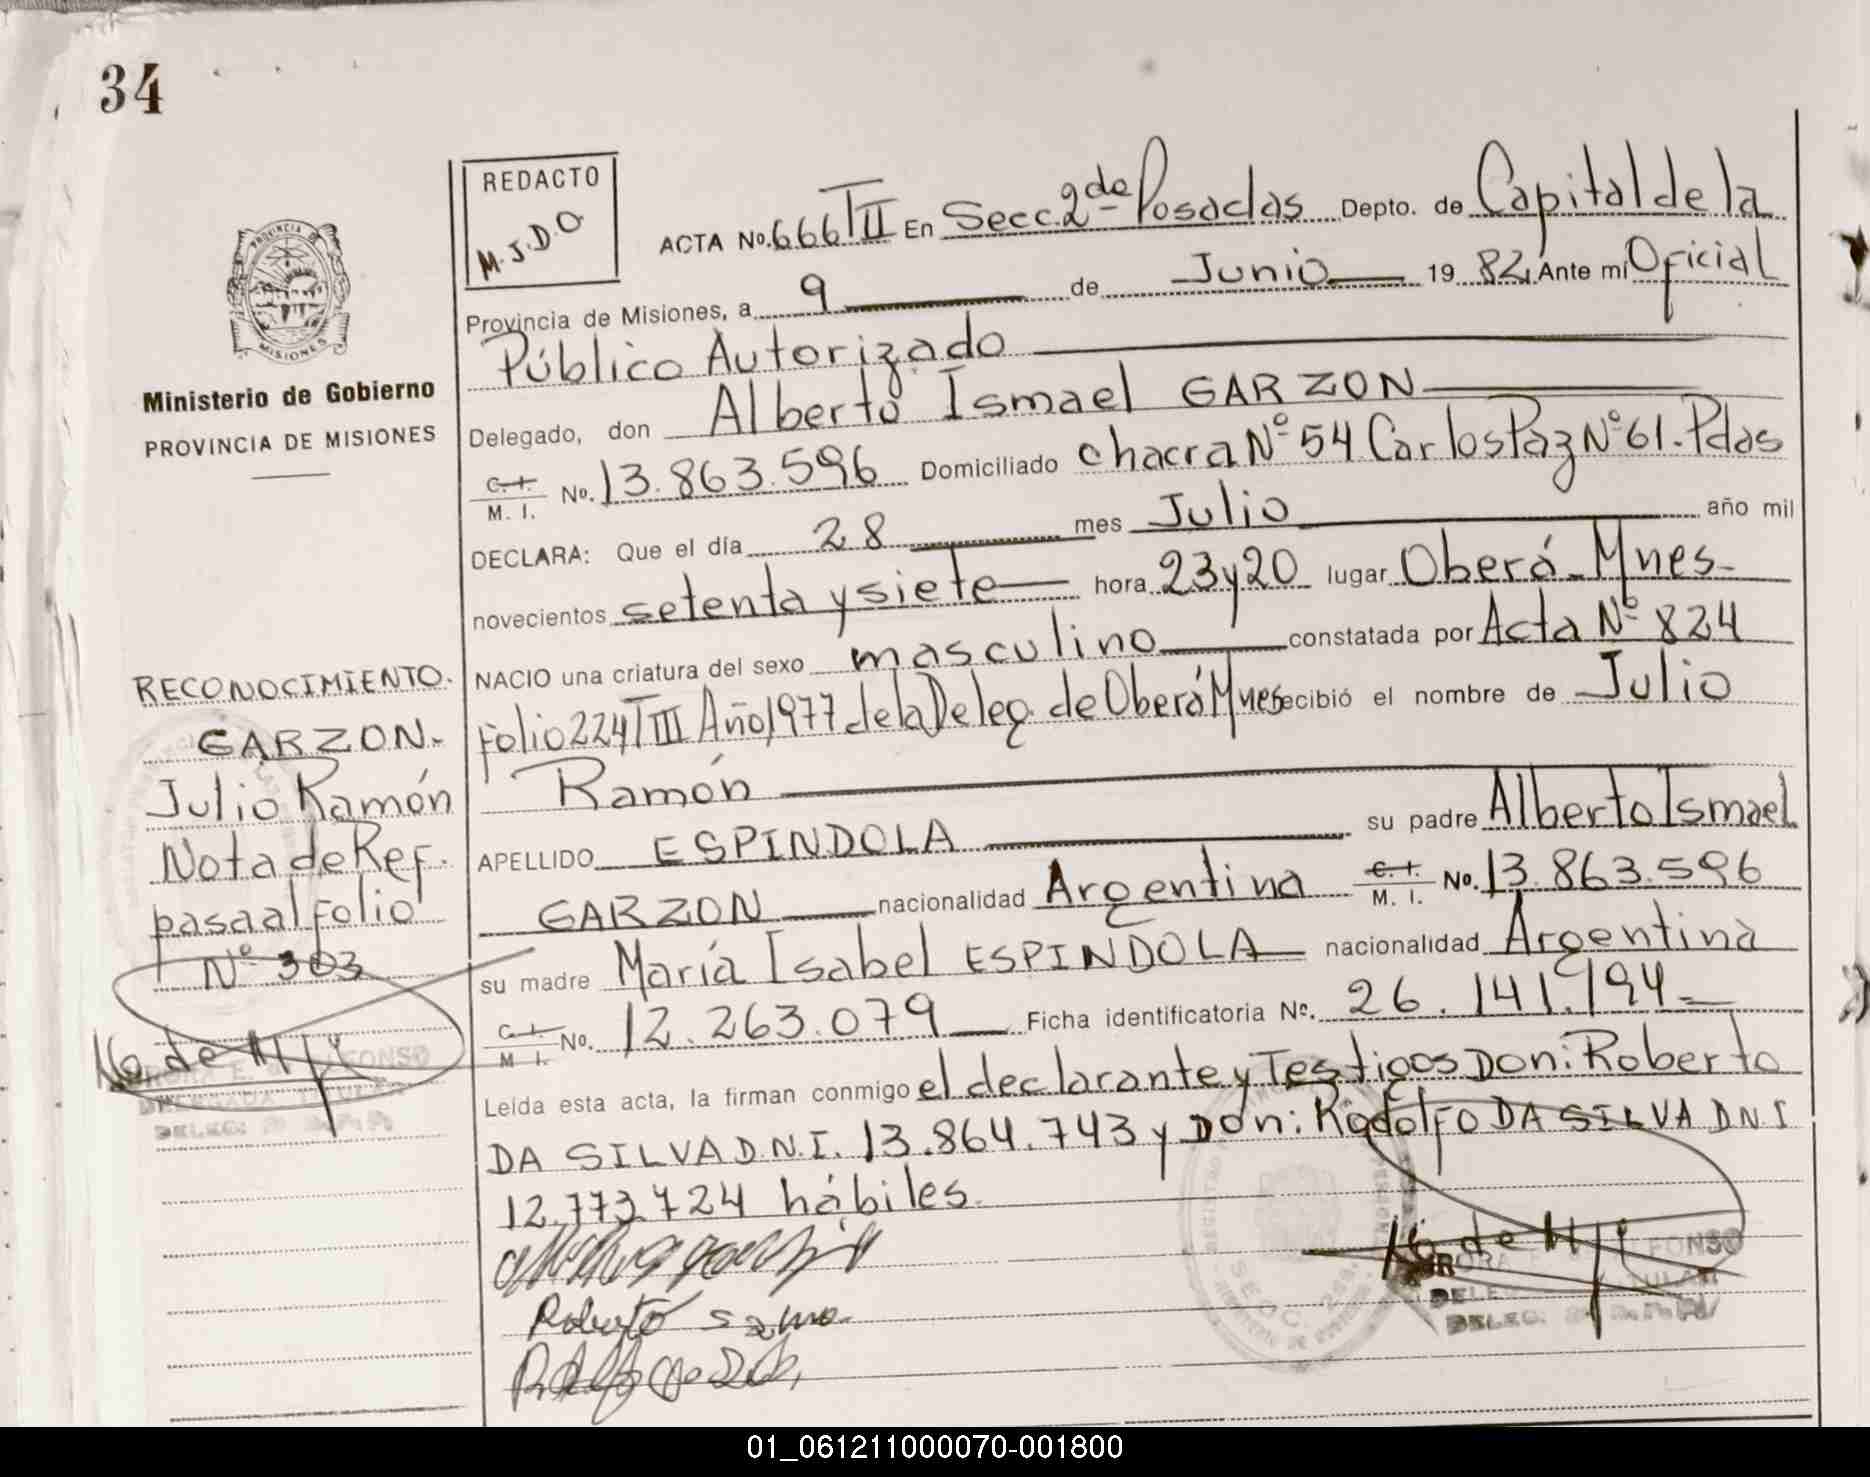 34
REDACTO
M.J.D.O
ACTA No. 666 TII En Secc. 2da Posadas Depto. de Capital de la
Provincia de Misiones, a 9 de Junio 1982 Ante mí Oficial
Público Autorizado
Delegado, don Alberto Ismael GARZON
C.I. M. I. No. 13.863.596 Domiciliado chacra Nº 54 Carlos Paz Nº 61. Pdas
DECLARA: Que el día 28 mes Julio año mil
novecientos setenta y siete hora 23 y 20 lugar Oberá - Mnes -
NACIO una criatura del sexo masculino constatada por Acta Nº 824
Folio 224 TIII Año 1977 de la Deleg. de Oberá Mnes recibió el nombre de Julio
Ramón
APELLIDO ESPINDOLA su padre Alberto Ismael
GARZON nacionalidad Argentina C.I. M. I. No. 13.863.596
su madre María Isabel ESPINDOLA nacionalidad Argentina
C.I. M I. No. 12.263.079 Ficha identificatoria Nº. 26.141.194 -
Leída esta acta, la firman conmigo el declarante y Testigos Don: Roberto
DA SILVA D.N.I. 13.864.743 y Don: Rodolfo DA SILVA DNI
12.773.724 hábiles.
PROVINCIA DE MISIONES
Ministerio de Gobierno
PROVINCIA DE MISIONES
RECONOCIMIENTO.
GARZON.
Julio Ramón
Nota de Ref.
pasa al folio
Nº 303
01_061211000070-001800